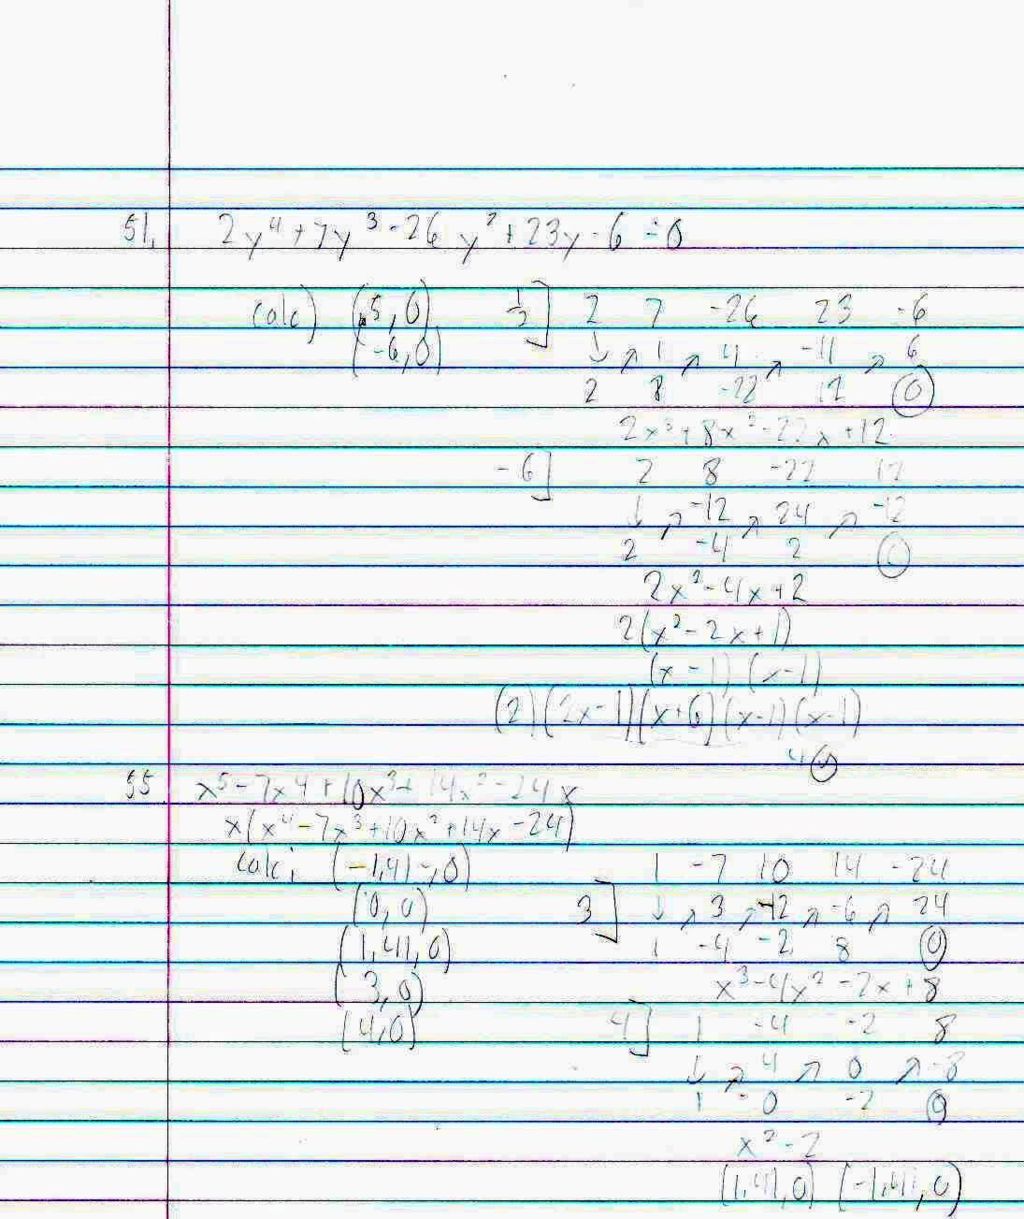 51. 2y⁴+7y³-26y²+23y-6=0
calc) (.5,0) 1/2] 2 7 -26 23 -6
(-6,0) ↓ ↗ 1 ↗ 4 ↗ -11 ↗ 6
2 8 -22 12 0
2x³+8x²-22x+12
-6] 2 8 -22 12
↓ ↗ -12 ↗ 24 ↗ -12
2 -4 2 0
2x²-4x+2
2(x²-2x+1)
(x-1)(x-1)
(2)(2x-1)(x+6)(x-1)(x-1)
55 x⁵-7x⁴+10x³+14x²-24x
x(x⁴-7x³+10x²+14x-24)
calc; (-1.41~,0) 1 -7 10 14 -24
(0,0) 3] ↓ ↗ 3 ↗ -12 ↗ -6 ↗ 24
(1.41,0) 1 -4 -2 8 0
(3,0) x³-4x²-2x+8
(4,0) 4] 1 -4 -2 8
↓ ↗ 4 ↗ 0 ↗ -8
1 0 -2 0
x²-2
(1.41,0) (-1.41,0)